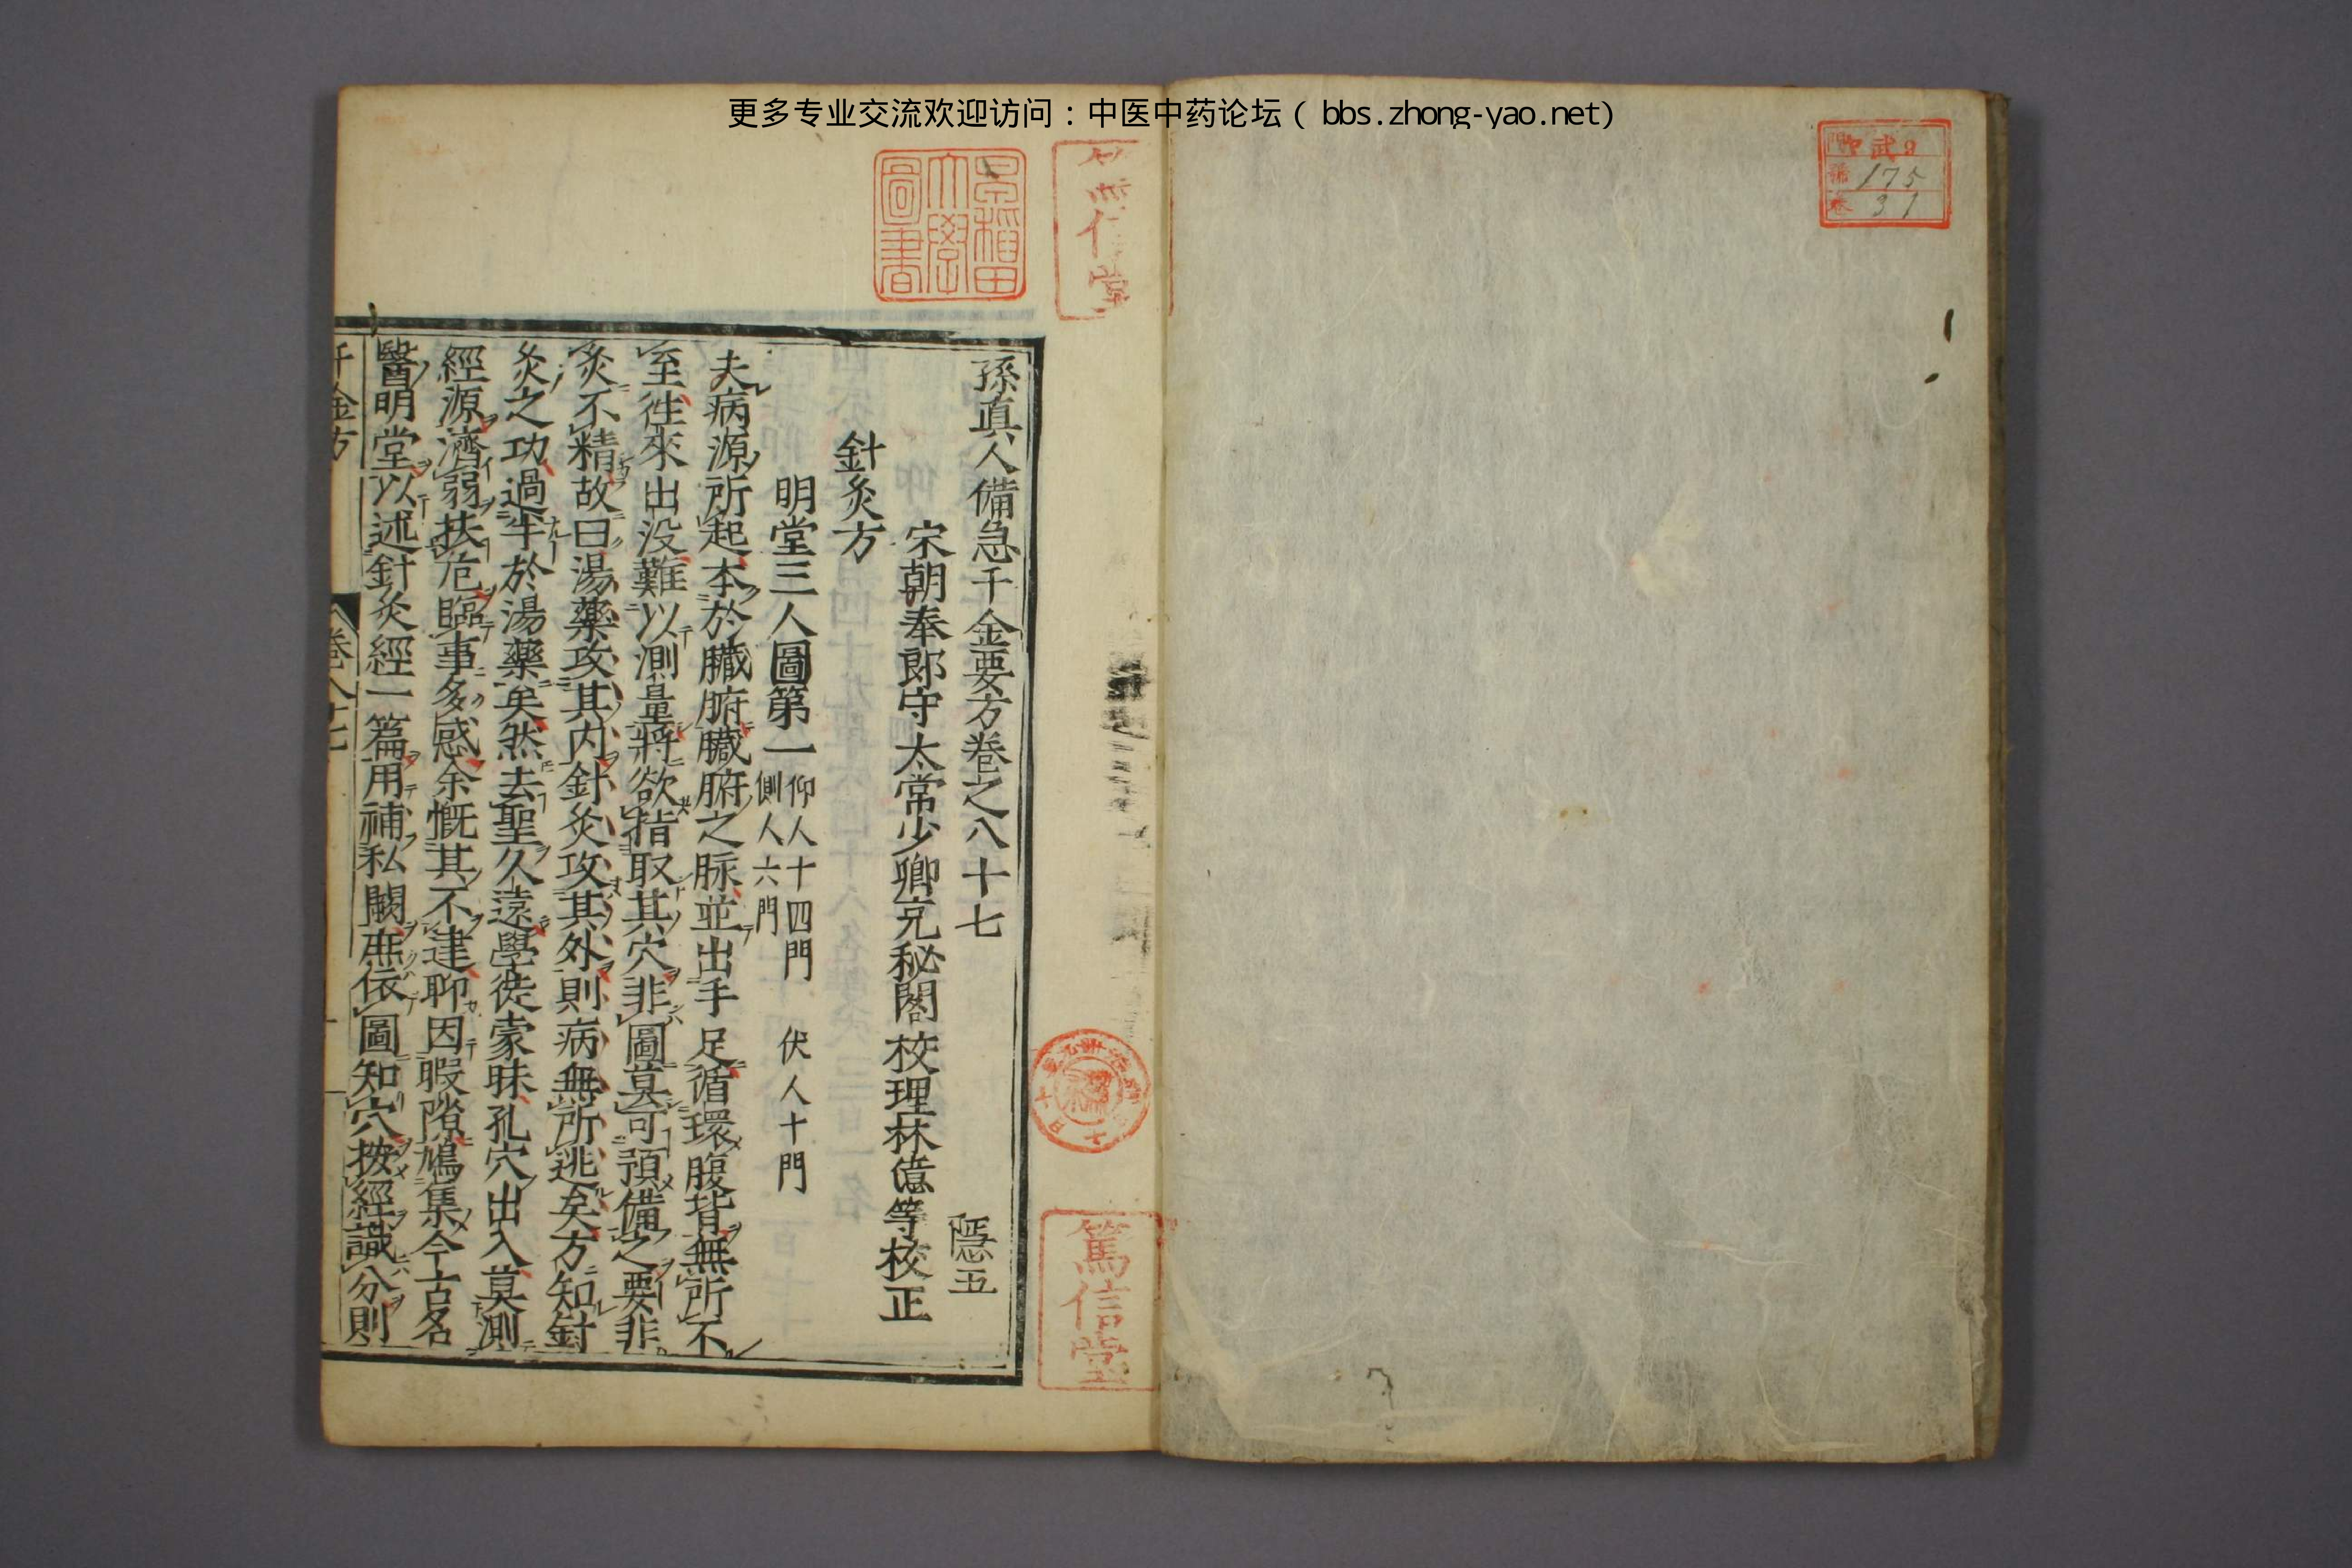 更多专业交流欢迎访问：中医中药论坛（bbs.zhong-yao.net）
175
31
篤信堂
早稲田大學圖書
孫真人備急千金要方卷之八十七
隱五
宋朝奉郎守太常少卿充秘閣校理林億等校正
針灸方
明堂三人圖第一
仰人十四門 伏人十門
側人六門
夫病源所起本於臟腑臟腑之脉並出手足循環腹背無所不
至徃來出没難以測量將欲指取其穴非圖莫可預備之要非
灸不精故曰湯藥攻其内針灸攻其外則病無所逃矣方知針
灸之功過半於湯藥矣然去聖久遠學徒蒙昧孔穴出入莫測
經源濟弱扶危臨事多惑余慨其不逮聊因暇隙鳩集今古名
醫明堂以述針灸經一篇用補私闕庶依圖知穴按經識分則
千金方
卷八十七
篤信堂